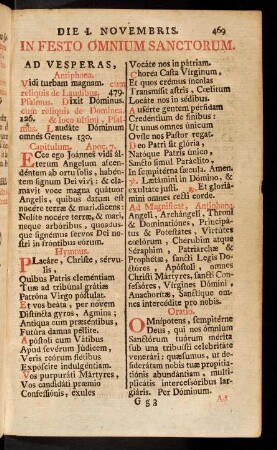 DIE 4. NOVEMBRIS. 469
IN FESTO OMNIUM SANCTORUM.
AD VESPERAS,
Antiphona.
Vidi turbam magnam. cum
reliquis de Laudibus. 479.
Psalmus. Dixit Dominus.
cum reliquis de Dominica
126. & loco ultimi, Psal-
mus. Laudáte Dóminum
omnes Gentes. 130.
Capitulum. Apoc. 7.
Ecce ego Joánnes vidi ál-
terum Angelum ascendé-
tem ab ortu solis, habén-
tem signum Dei vivi: & cla-
mávit voce magna quátuor
Angelis, quibus datum est
nocére terræ & mari, dicens:
Nolíte nocére terræ, & mari,
neque arbóribus, quoadus-
que signémus servos Dei no-
stri in fróntibus eórum.
Hymnus.
Placáre, Christe, sérvu-
lis
Quibus Patris cleméntiam
Tuæ ad tribúnal grátiæ
Patróna Virgo póstulat.
Et vos beáta, per novem
Distíncta gyros, Agmina;
Antíqua cum præséntibus,
Futúra damna péllite.
Apóstoli cum Vátibus
Apud sevérum Júdicem,
Veris reórum flétibus
Expóscite indulgéntiam.
Vos purpuráti Mártyres,
Vos candidáti præmio
Confessiónis, exules
Vocáte nos in pátriam.
Chorea Casta Vírginum,
Et quos eremus íncolas
Transmísit astris, Cœlitum
Locáte nos in sédibus.
Auférte gentem pérfidam
Credéntium de fínibus:
Ut unus omnes únicum
Ovíle nos Pastor regat.
Deo Patri sit glória,
Natóque Patris único,
Sancto simul Paráclito,
In sempitérna sæcula. Amen
℣. Lætámini in Dómino, &
exultáte justi. ℟. Et gloriá-
mini omnes recti corde.
Ad Magnificat, Antiphona.
Angeli, Archángeli, Throni
& Dominatiónes, Principá-
tus & Potestátes, Virtútes
cœlórum, Chérubim atque
Séraphim, Patriárchæ &
Prophétæ, sancti Legis Do-
ctóres, Apóstoli, omnes
Christi Mártyres, sancti Con-
fessóres, Vírgines Dómini
Anachorítæ, Sanctíque om-
nes intercédite pro nobis.
Oratio.
Omnípotens, sempitérne
Deus, qui nos ómnium
Sanctórum tuórum mérita
sub una tribuísti celebritáte
venerári: quæsumus, ut de-
siderátam nobis tuæ propitia-
tiónis abundántiam, multi-
plicátis intercessóribus lar-
giáris. Per Dóminum.
G g 3